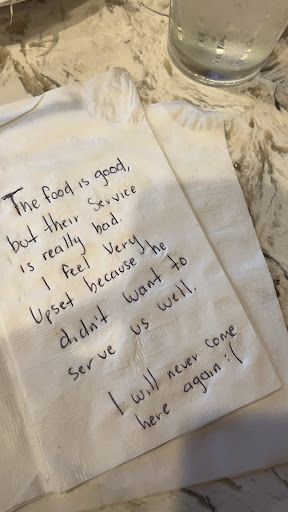 The food is good,
but their service
is really bad.
I feel very
upset because he
didn't want to
serve us well.
I will never come
here again :(